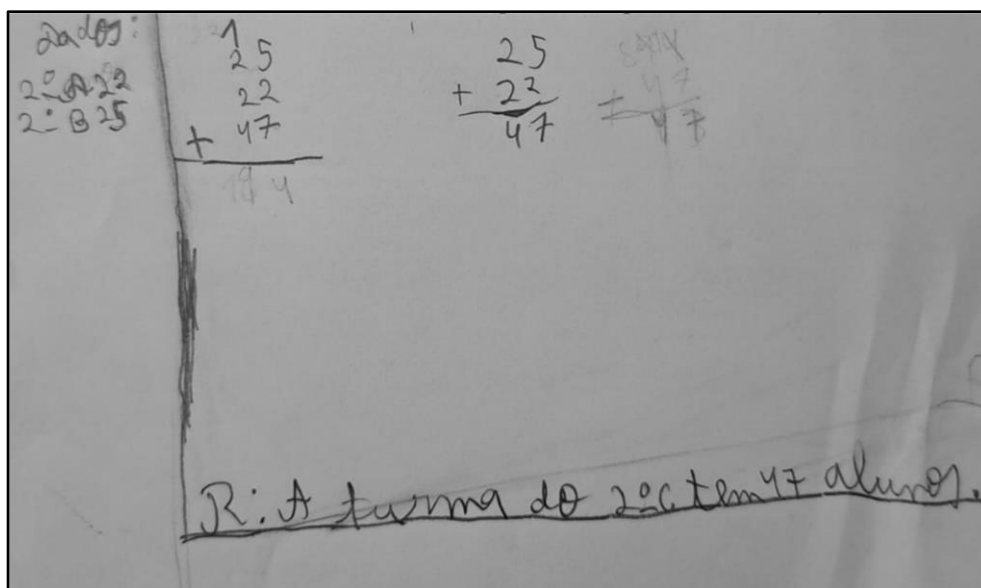 Dados:
2º A 22
2º B 25
1
25
22
+ 47
194
25
+ 22
47
47
47
R: A turma do 2ºC tem 47 alunos.